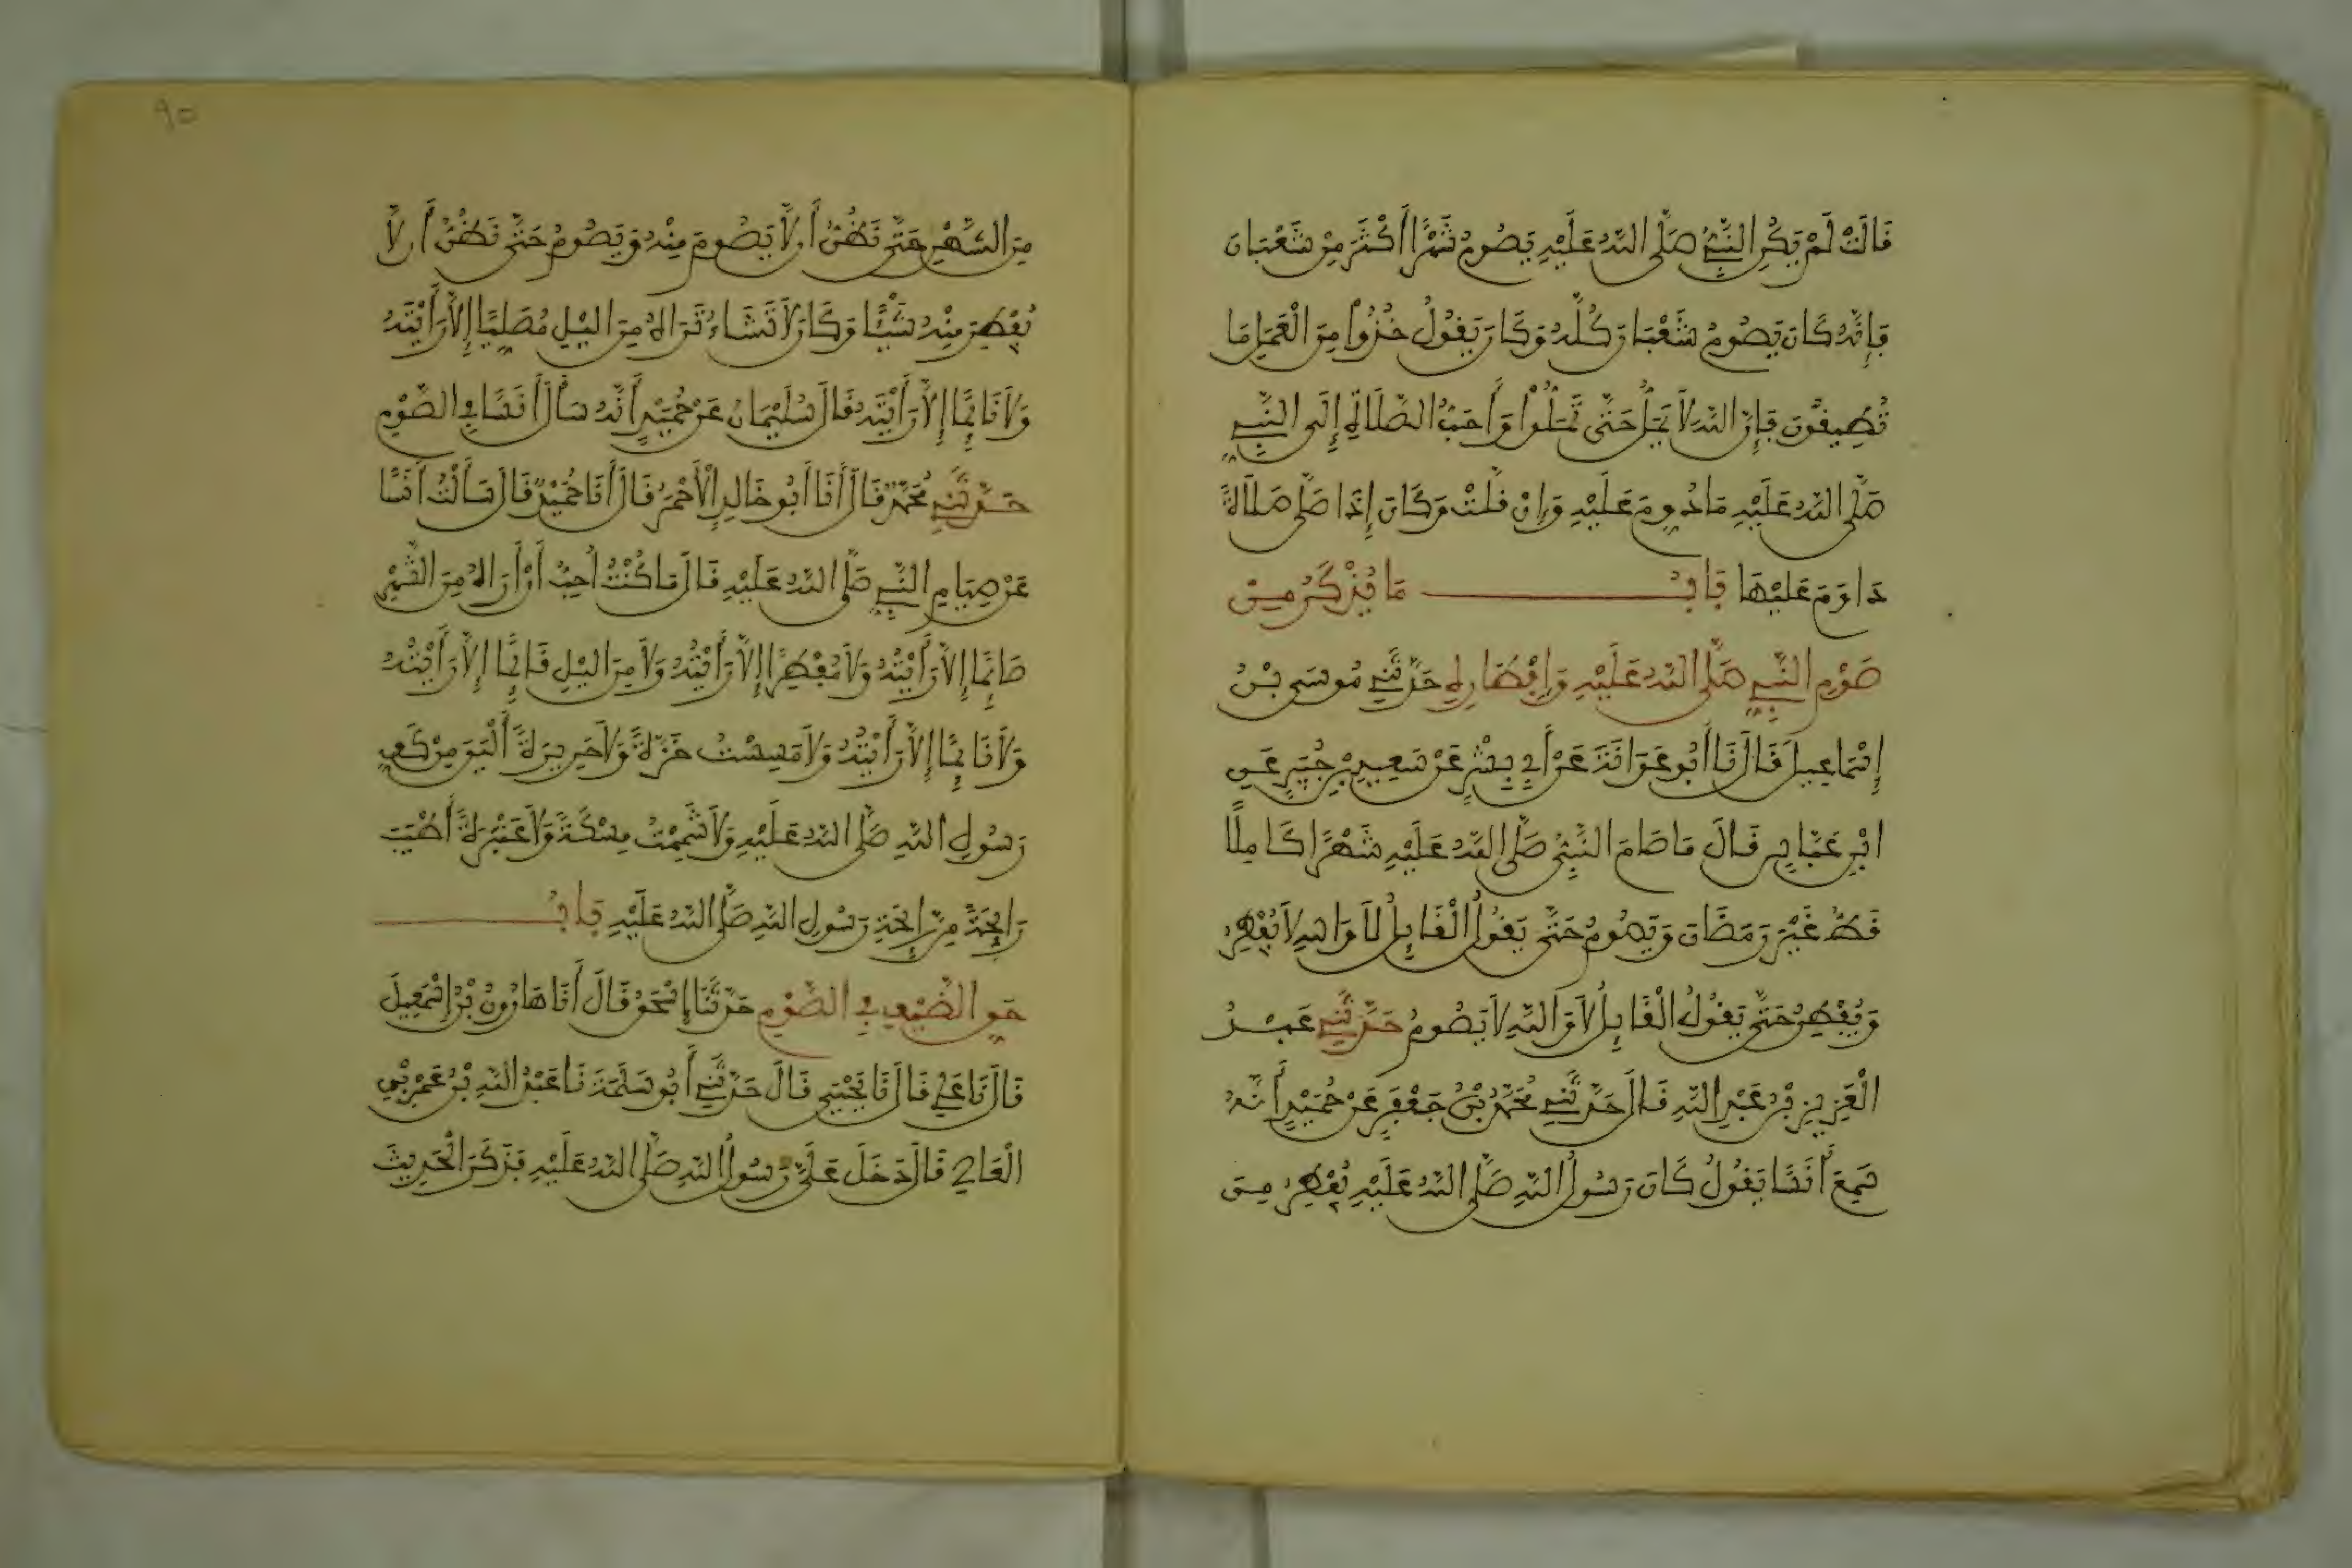 قَالَتْ لَمْ يَكُنِ النَّبِيُّ صَلَّى اللَّهُ عَلَيْهِ يَصُومُ شَهْرًا أَكْثَرَ مِنْ شَعْبَانَ
فَإِنَّهُ كَانَ يَصُومُ شَعْبَانَ كُلَّهُ وَكَانَ يَقُولُ خُذُوا مِنَ الْعَمَلِ مَا
تُطِيقُونَ فَإِنَّ اللَّهَ لَا يَمَلُّ حَتَّى تَمَلُّوا وَأَحَبُّ الصَّلَاةِ إِلَى النَّبِيِّ
صَلَّى اللَّهُ عَلَيْهِ مَا دُووِمَ عَلَيْهِ وَإِنْ قَلَّتْ وَكَانَ إِذَا صَلَّى صَلَاةً
دَاوَمَ عَلَيْهَا بَابُ مَا يُذْكَرُ مِنْ
صَوْمِ النَّبِيِّ صَلَّى اللَّهُ عَلَيْهِ وَإِفْطَارِهِ حَدَّثَنِي مُوسَى بْنُ
إِسْمَاعِيلَ قَالَ نَا أَبُو عَوَانَةَ عَنْ أَبِي بِشْرٍ عَنْ سَعِيدِ بْنِ جُبَيْرٍ عَنِ
ابْنِ عَبَّاسٍ قَالَ مَا صَامَ النَّبِيُّ صَلَّى اللَّهُ عَلَيْهِ شَهْرًا كَامِلًا
قَطُّ غَيْرَ رَمَضَانَ وَيَصُومُ حَتَّى يَقُولُ الْقَائِلُ لَا وَاللهِ لَا يُفْطِرُ
وَيُفْطِرُ حَتَّى يَقُولُ الْقَائِلُ لَا وَاللَّهِ لَا يَصُومُ حَدَّثَنِي عَبْدُ
الْعَزِيزِ بْنُ عَبْدِ اللَّهِ قَالَ حَدَّثَنِي مُحَمَّدُ بْنُ جَعْفَرٍ عَنْ حُمَيْدٍ أَنَّهُ
سَمِعَ أَنَسًا يَقُولُ كَانَ رَسُولُ اللَّهِ صَلَّى اللَّهُ عَلَيْهِ يُفْطِرُ مِنَ
٩٥
مِنَ الشَّهْرِ حَتَّى نَظُنُّ أَن لَّا يَصُومَ مِنْهُ وَيَصُومُ حَتَّى نَظُنُّ أَن لَّا
يُفْطِرَ مِنْهُ شَيْئًا وَكَانَ لَا تَشَاءُ تَرَاهُ مِنَ اليْلِ مُصَلِّيًا إِلَّا رَأَيْتَهُ
وَلَا نَائِمًا إِلَّا رَأَيْتَهُ قَالَ سُلَيْمَانُ عَنْ حُمَيْدٍ أَنَّهُ سَأَلَ أَنَسًا فِي الصَّوْمِ
حَدَّثَنِي مُحَمَّدٌ قَالَ أَنَا أَبُو خَالِدٍ الْأَحْمَرُ قَالَ أَنَا حُمَيْدٌ قَالَ سَأَلْتُ أَنَسًا
عَنْ صِيَامِ النَّبِيِّ صَلَّى اللَّهُ عَلَيْهِ قَالَ مَا كُنْتُ أُحِبُّ أَنْ أَرَاهُ مِنَ الشَّهْرِ
صَائِمًا إِلَّا رَأَيْتُهُ وَلَا مُفْطِرًا إِلَّا رَأَيْتُهُ وَلَا مِنَ اليْلِ قَائِمًا إِلَّا رَأَيْتُهُ
وَلَا نَائِمًا إِلَّا رَأَيْتُهُ وَلَا مَسِسْتُ خَزَّةً وَلَا حَرِيرَةً أَلْيَنَ مِنْ كَفِّ
رَسُولِ اللَّهِ صَلَّى اللَّهُ عَلَيْهِ وَلَا شَمِمْتُ مِسْكَةً وَلَا عَنْبَرَةً أَطْيَبَ
رَائِحَةً مِنْ رَائِحَةِ رَسُولِ اللَّهِ صَلَّى اللَّهُ عَلَيْهِ بَابُ
حَقِّ الضَّيْفِ فِي الصَّوْمِ حَدَّثَنَا إِسْحَقُ قَالَ أَنَا هَارُونُ بْنُ إِسْمَعِيلَ
قَالَ نَا عَلِيٌّ قَالَ نَا يَحْيَى قَالَ حَدَّثَنِي أَبُو سَلَمَةَ نَا عَبْدُ اللَّهِ بْنُ عَمْرِو بْنِ
الْعَاصِي قَالَ دَخَلَ عَلَيَّ رَسُولُ اللَّهِ صَلَّى اللَّهُ عَلَيْهِ فَذَكَرَ الْحَدِيثَ